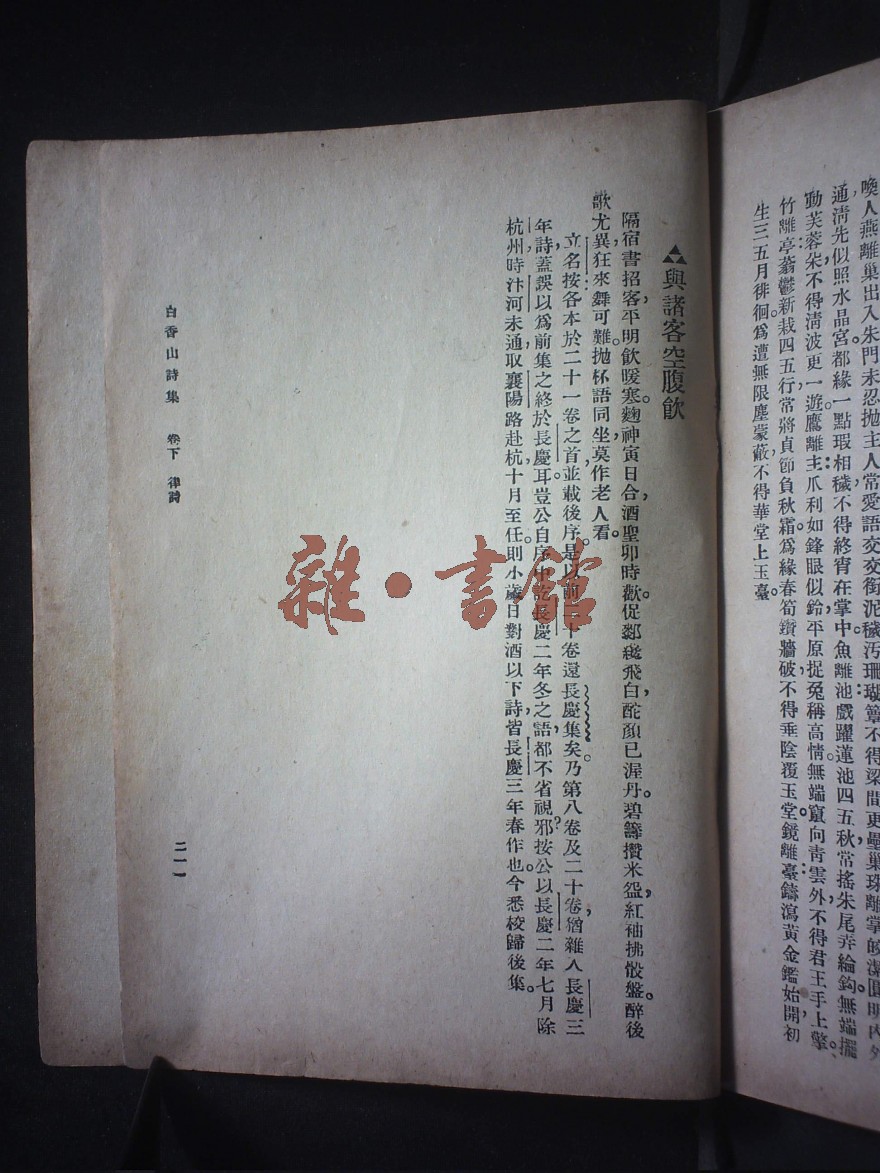 喚人燕離巢出入朱門未忍拋主人常愛語交交銜泥穢汚珊瑚簟不得梁間更壘巢珠離掌皎潔圓明內外
通淸先似照水晶宮都緣一點瑕相穢不得終宵在掌中魚離池戲躍蓮池四五秋常搖朱尾弄綸鈎無端擺
動芙蓉朶不得淸波更一遊鷹離主爪利如鋒眼似鈴平原捉兔稱高情無端竄向靑雲外不得君王手上擎。
竹離亭蓊鬱新栽四五行常將貞節負秋霜爲緣春筍鑽牆破不得垂陰覆玉堂鏡離臺鑄瀉黃金鑑始開初
生三五月徘徊爲遭無限塵蒙蔽不得華堂上玉臺。
與諸客空腹飮
隔宿書招客，平明飮暖寒。麴神寅日合，酒聖卯時歡。促膝纔飛白，酡顏已渥丹。碧籌攢米盌，紅袖拂骰盤。醉後
歌尤異，狂來舞可難。拋杯語同坐，莫作老人看。
立名按：各本於二十一卷之首，並載後序。是以前二十卷還長慶集矣。乃第八卷及二十卷，猶雜入長慶三
年詩，蓋誤以爲前集之終於長慶耳。豈公自序中訖長慶二年冬之語，都不省視邪？按公以長慶二年七月除
杭州，時汴河未通，取襄陽路赴杭，十月至任，則小歲日對酒以下詩，皆長慶三年春作也。今悉校歸後集。
雜·書館
白香山詩集 卷下 律詩
二一一